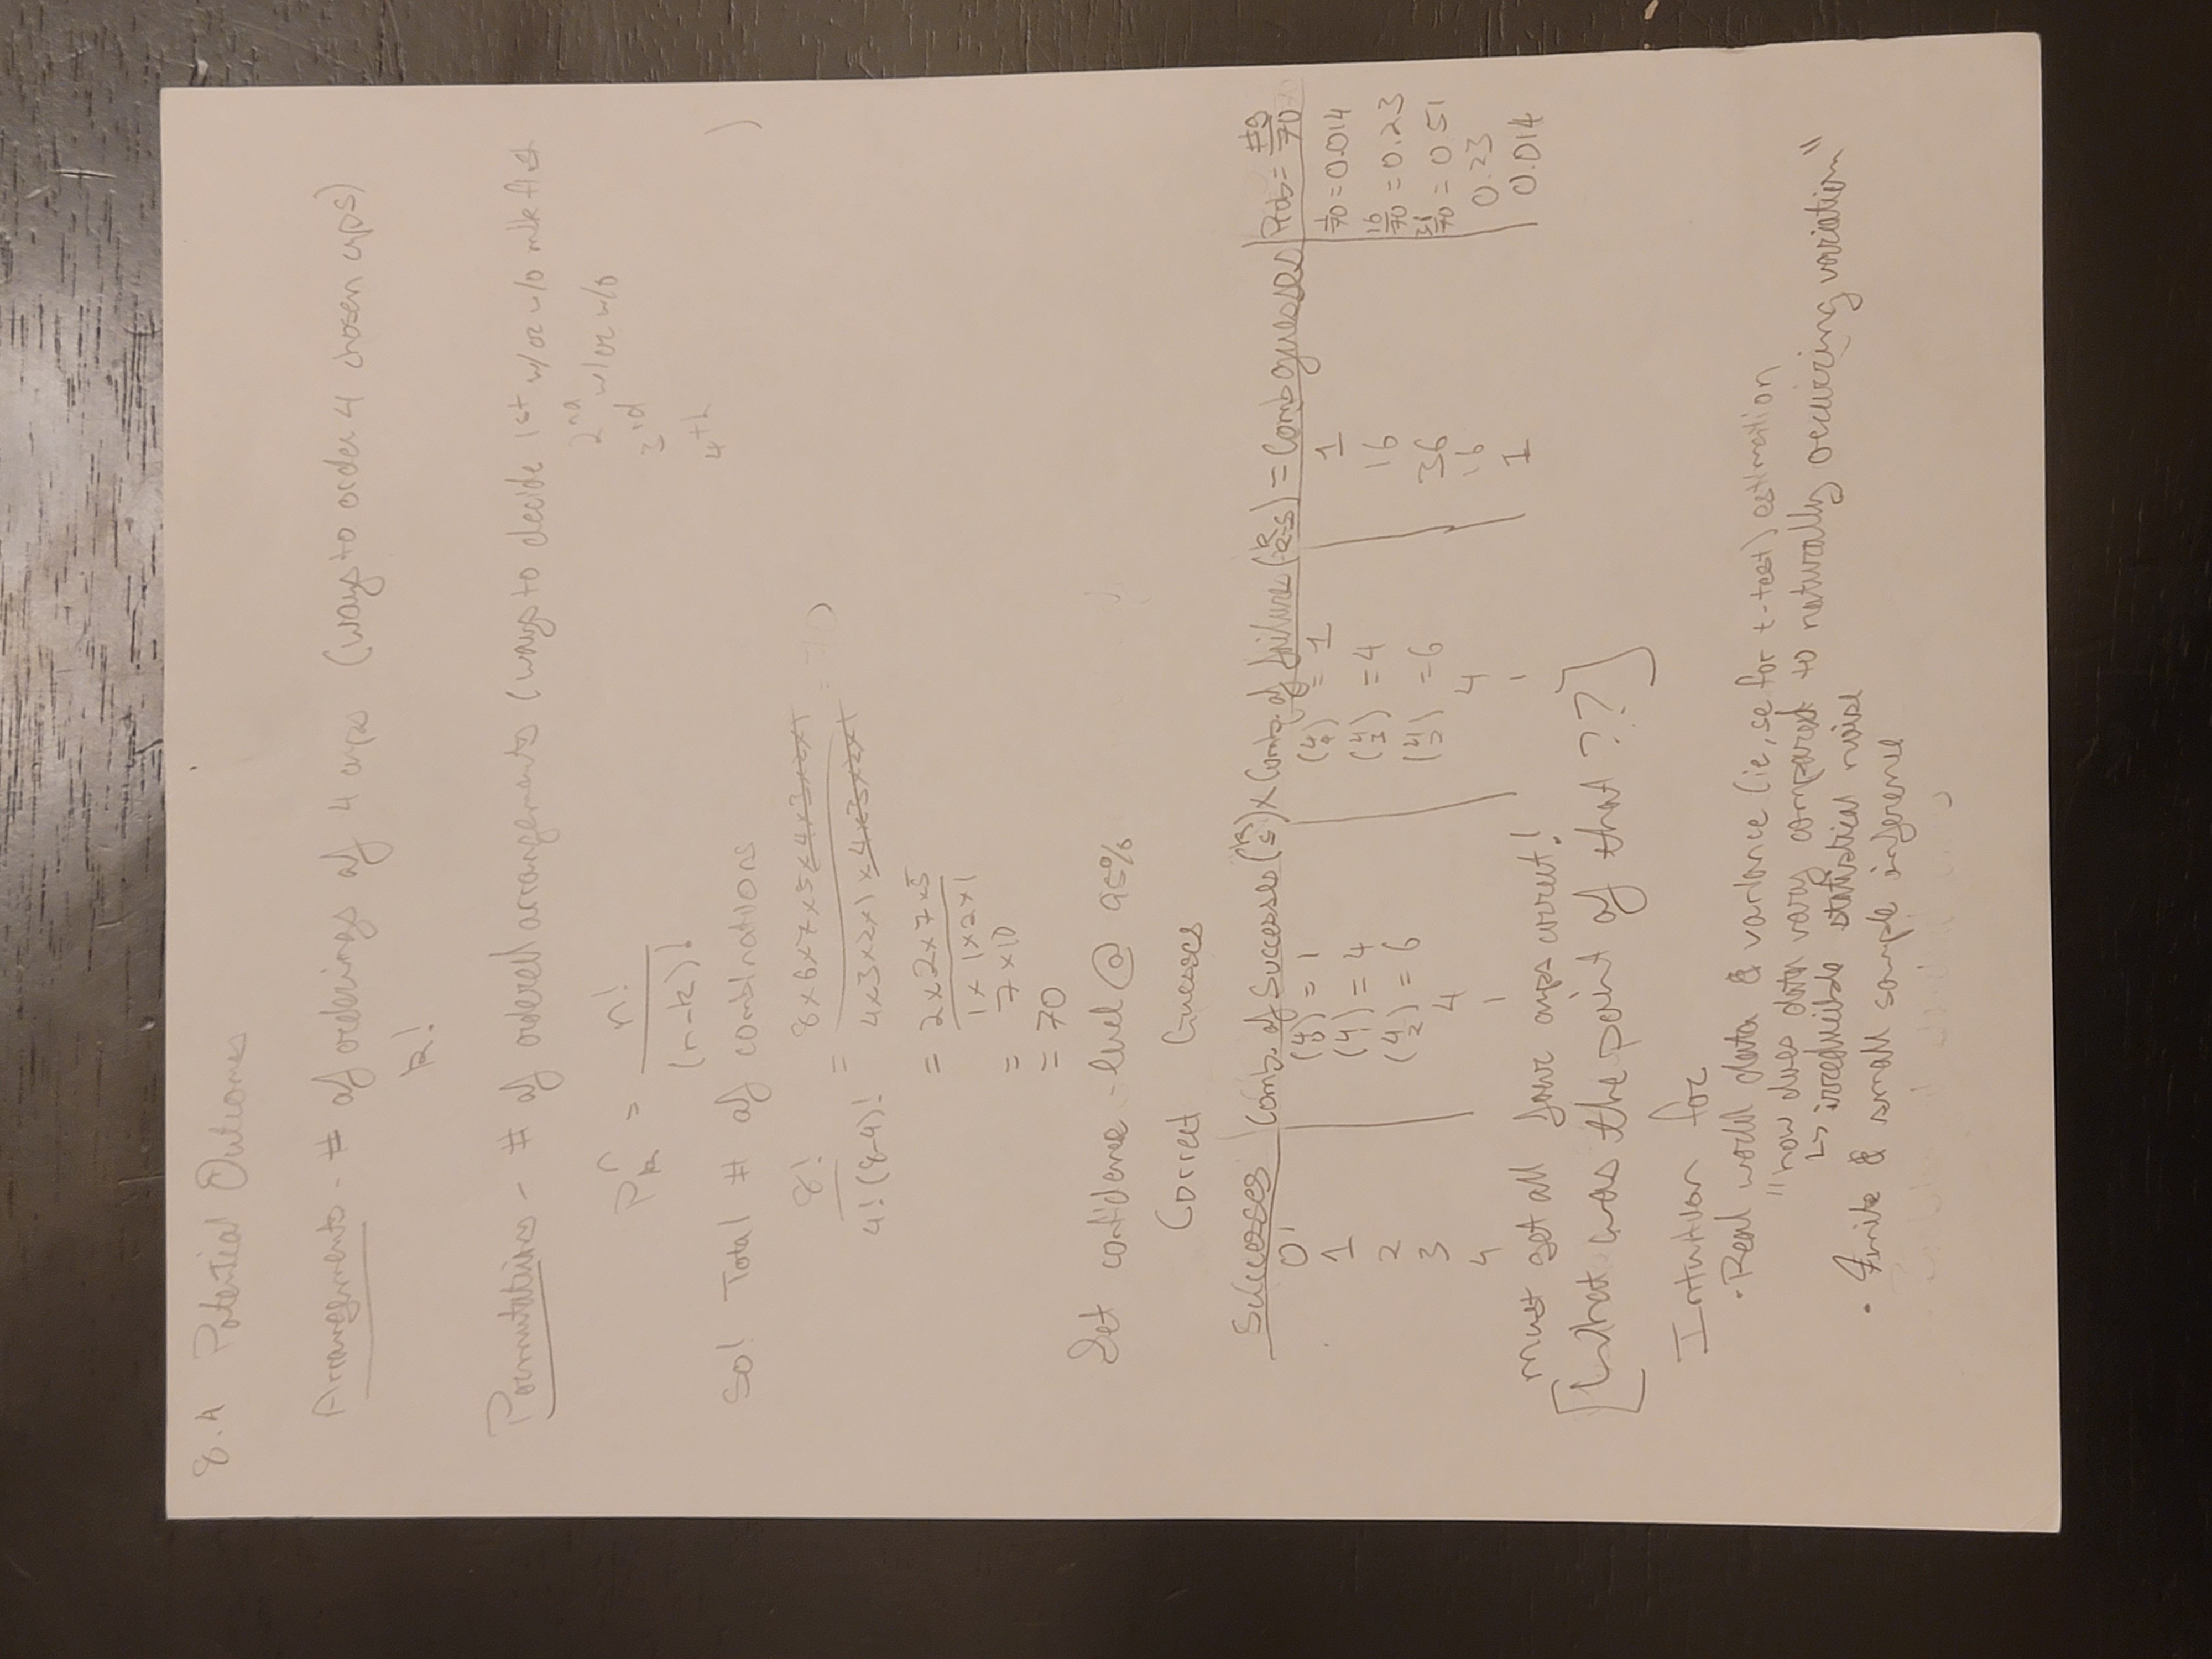 8.4 Potential Outcomes
Arrangements - # of orderings of 4 cups (ways to order 4 chosen cups)
k!
Permutations - # of ordered arrangements (ways to decide 1st w/or w/o milk first
2nd w/or w/o
3rd
4th )
P^n_k = n! / (n-k)!
So! Total # of combinations
8! / 4!(8-4)! = 8×6×7×5×4×3×2×1 / 4×3×2×1×4×3×2×1 = 70
= 2×2×7×5 / 1×1×2×1
= 7×10
= 70
Set confidence-level @ 95%
Correct Guesses
Successes | Comb. of Successes (k s) × Comb. of failures (k k-s) = Comb guesses | Prob = #g/70
0 | (4 0) = 1 | (4 4) = 1 | 1 | 1/70 = 0.014
1 | (4 1) = 4 | (4 3) = 4 | 16 | 16/70 = 0.23
2 | (4 2) = 6 | (4 2) = 6 | 36 | 36/70 = 0.51
3 | 4 | 4 | 16 | 0.23
4 | 1 | 1 | 1 | 0.014
Must get all four cups correct!
[What was the point of that??]
Intuition for
· Real world data & variance (ie, se for t-test) estimation
"how does data vary compared to naturally occurring variation"
↳ irreducible statistical noise
· Finite & small sample inference